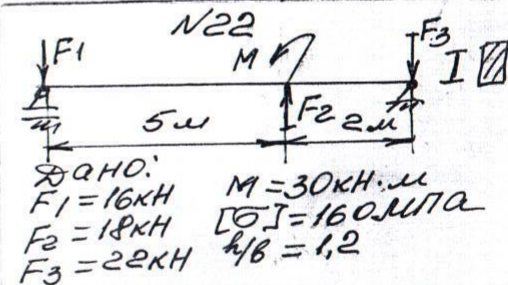 N22
F1
M
F3
I
F2
5м
2м
Дано:
F1 = 16кН
F2 = 18кН
F3 = 22кН
M = 30кН·м
[σ] = 160МПа
h/в = 1,2